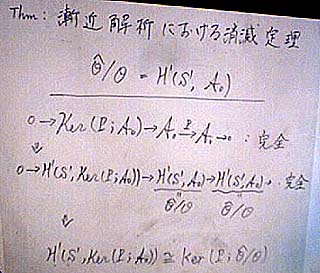 Thm: 漸近解析における消滅定理
Ô/O = H¹(S¹, A₀)
0→Ker(P; A₀)→A₀ →P A₀→0 : 完全
⇓
0→H¹(S¹, Ker(P; A₀))→H¹(S¹, A₀)→H¹(S¹, A₀)→ : 完全
Ô/O Ô/O
⇓
H¹(S¹, Ker(P; A₀)) ≅ Ker(P; Ô/O)